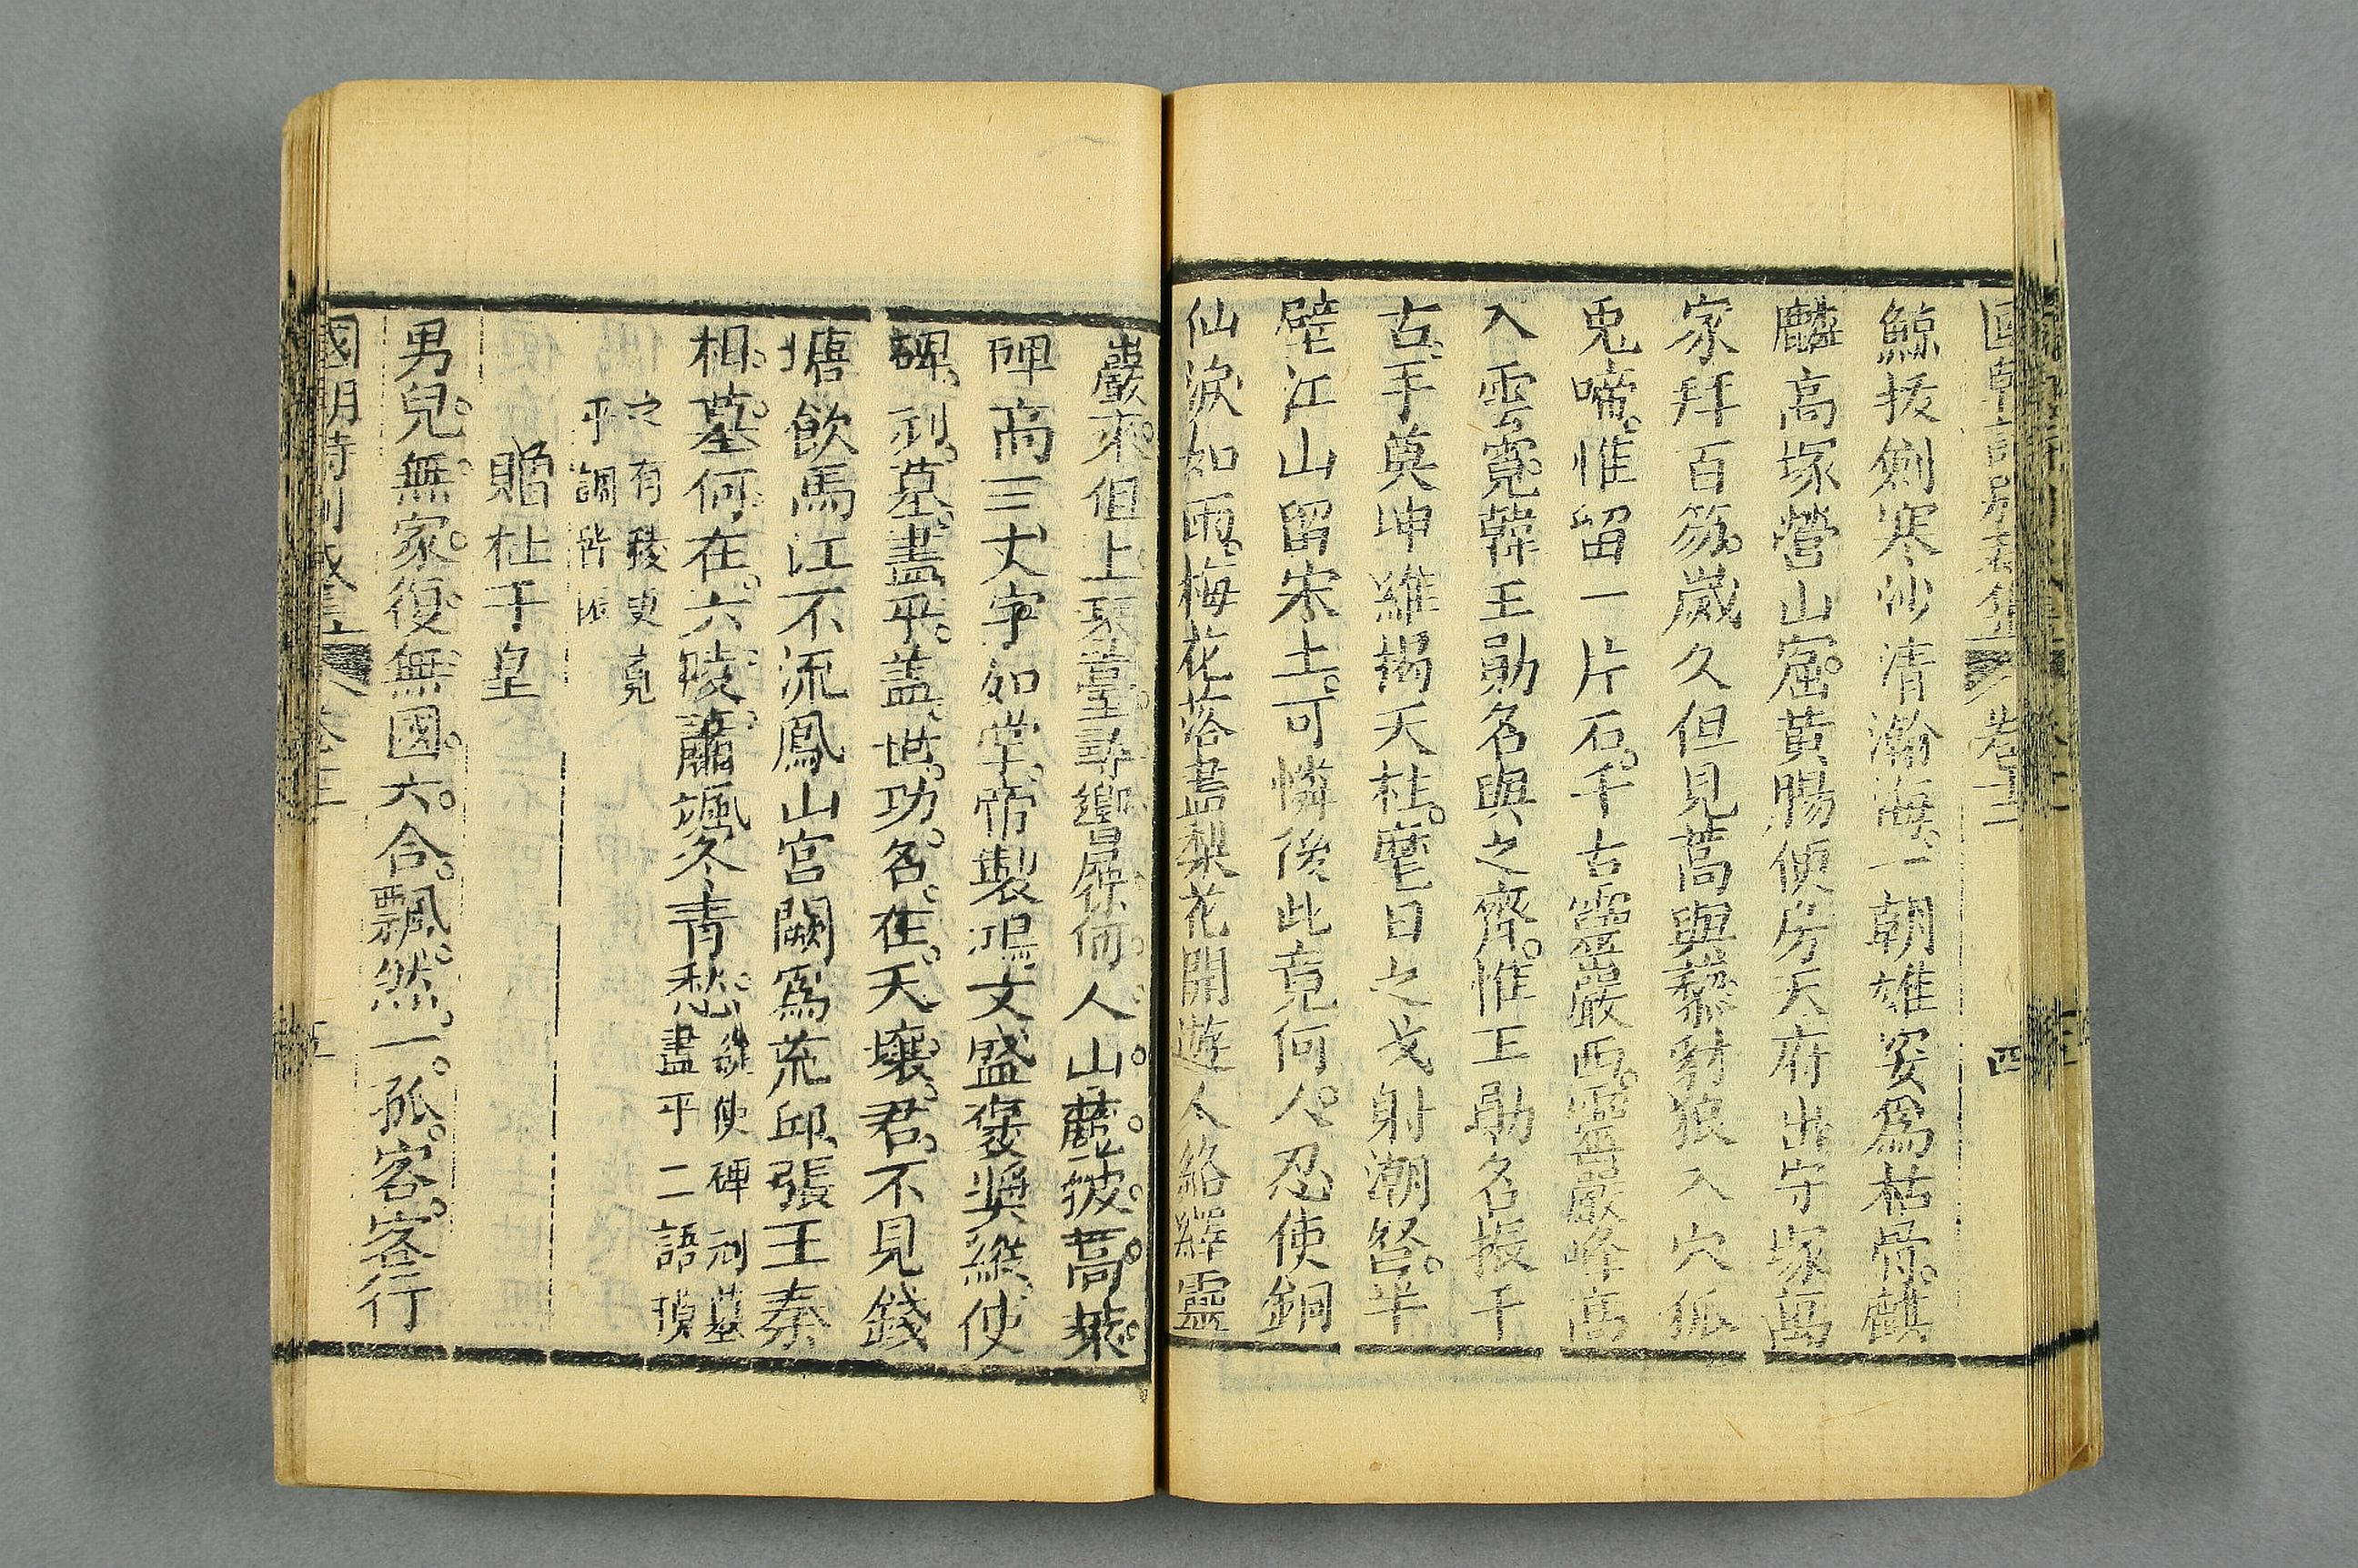 國朝詩別裁集 卷十二 四
鯨拔劍寒沙清瀚海一朝雄姿爲枯骨麒
麟高塚營山窟黃腸便房天府出守塚萬
家拜百笏歲久但見蒿與藜豺狼入穴狐
兎啼惟留一片石千古靈巖西靈巖峰高
入雲霓韓王勛名與之齊惟王勛名振千
古手奠坤維揭天柱麾日之戈射潮弩半
壁江山留宋土可憐後此竟何人忍使銅
仙淚如雨梅花落盡梨花開遊人絡繹靈
巖來但上琴臺尋響屧何人山麓披蒿萊
碑高三丈字如掌帝製鴻文盛褒奬縱使
碑刓墓盡平蓋世功名在天壤君不見錢
塘飲馬江不流鳳山宮闕爲荒邱張王秦
相墓何在六陵蕭颯冬青愁縱使碑刓墓
盡平二語頓
之有移更竟
平調皆振
贈杜于皇
男兒無家復無國六合飄然一孤客客行
國朝詩別裁集 卷十二 五